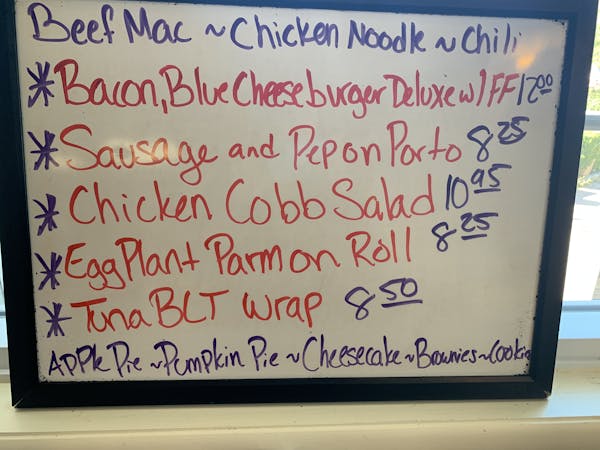 Beef Mac ~ Chicken Noodle ~ Chili
* Bacon, Blue Cheeseburger Deluxe w/ FF 12.00
* Sausage and Pep on Porto 8 25
* Chicken Cobb Salad 10 95
* EggPlant Parm on Roll 8 25
* Tuna BLT wrap 8 50
Apple Pie ~ Pumpkin Pie ~ Cheesecake ~ Brownies ~ Cookie